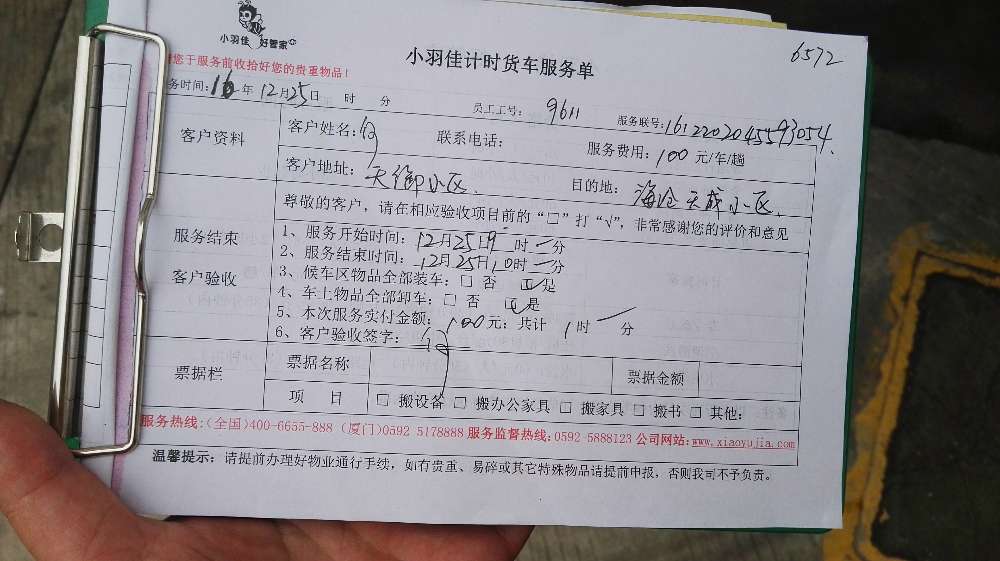 小羽佳 好管家
小羽佳计时货车服务单
6572
您于服务前收拾好您的贵重物品！
务时间：16年12月25日 时 分 员工工号：9611 服务联号：1612202045593054
客户资料
客户姓名：何 联系电话： 服务费用：100元/车/趟
客户地址：天御小区 目的地：海沧天成小区
服务结束
客户验收
尊敬的客户，请在相应验收项目前的“□”打“√”，非常感谢您的评价和意见
1、服务开始时间：12月25日9时 分
2、服务结束时间：12月25日10时 分
3、候车区物品全部装车：□ 否 ☑ 是
4、车上物品全部卸车：□ 否 ☑ 是
5、本次服务实付金额：100元；共计 1时 分
6、客户验收签字：何
票据栏
票据名称 票据金额
项 目 □ 搬设备 □ 搬办公家具 □ 搬家具 □ 搬书 □ 其他：
服务热线：(全国)400-6655-888 (厦门)0592 5178888 服务监督热线：0592-5888123 公司网站：www.xiaoyujia.com
温馨提示：请提前办理好物业通行手续，如有贵重、易碎或其它特殊物品请提前申报，否则我司不予负责。